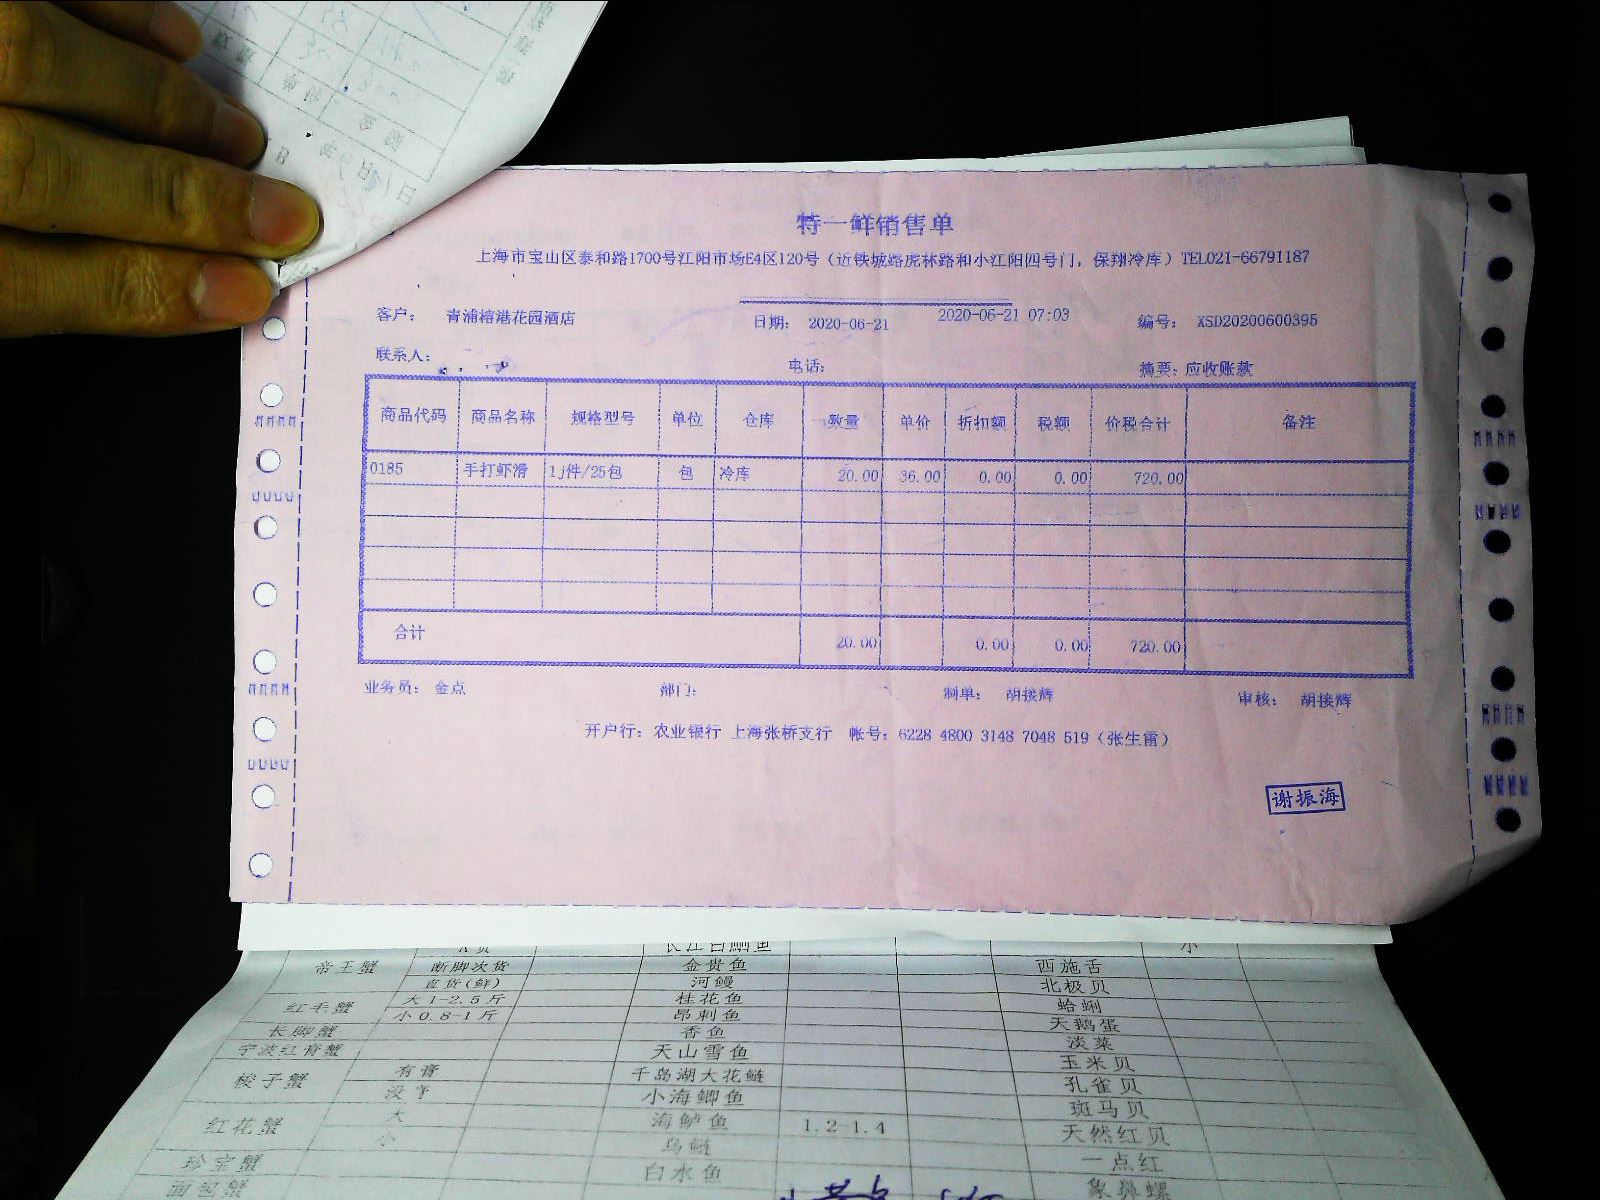 特一鲜销售单
上海市宝山区泰和路1700号江阳市场E4区120号（近铁城路虎林路和小江阳四号门，保翔冷库）TEL021-66791187
客户： 青浦榕港花园酒店 日期： 2020-06-21 2020-06-21 07:03 编号： XSD20200600395
联系人： 电话： 摘要：应收账款
商品代码 商品名称 规格型号 单位 仓库 数量 单价 折扣额 税额 价税合计 备注
0185 手打虾滑 1j件/25包 包 冷库 20.00 36.00 0.00 0.00 720.00
合计 20.00 0.00 0.00 720.00
业务员： 金点 部门： 制单： 胡接辉 审核： 胡接辉
开户行：农业银行 上海张桥支行 帐号：6228 4800 3148 7048 519（张生雷）
谢振海
帝王蟹 断脚次货 金贵鱼 西施舌
直货(鲜) 河鳗 北极贝
红毛蟹 大1-2.5斤 桂花鱼 蛤蜊
小0.8-1斤 昂刺鱼 天鹅蛋
长脚蟹 香鱼 淡菜
宁波红膏蟹 天山雪鱼 玉米贝
梭子蟹 有膏 千岛湖大花鲢 孔雀贝
没膏 小海鲫鱼 斑马贝
红花蟹 大 海鲈鱼 1.2-1.4 天然红贝
小 乌鲢 一点红
珍宝蟹 白水鱼 象鼻螺
面包蟹